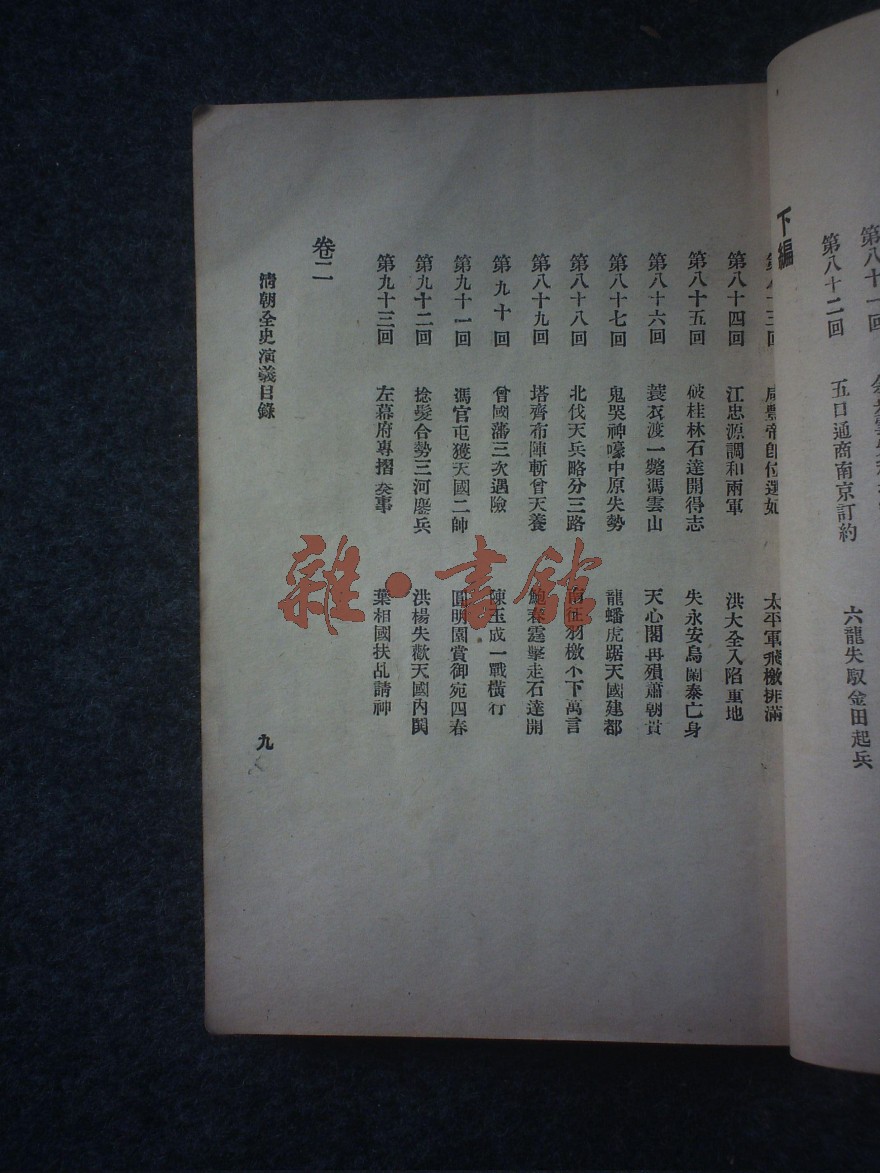 第八十一回
第八十二回 五口通商南京訂約 六龍失馭金田起兵
下編
第八十三回 咸豐帝卽位選妃 太平軍飛檄排滿
第八十四回 江忠源調和兩軍 洪大全入陷重地
第八十五回 破桂林石達開得志 失永安烏蘭泰亡身
第八十六回 蓑衣渡一斃馮雲山 天心閣再殞蕭朝貴
第八十七回 鬼哭神嚎中原失勢 龍蟠虎踞天國建都
第八十八回 北伐天兵略分三路 南征羽檄不下萬言
第八十九回 塔齊布陣斬曾天養 鮑春霆擊走石達開
第九十回 曾國藩三次遇險 陳玉成一戰橫行
第九十一回 馮官屯獲天國二帥 圓明園賞御宛四春
第九十二回 捻髮合勢三河鏖兵 洪楊失歡天國內閧
第九十三回 左幕府專摺奏事 葉相國扶乩請神
卷二
清朝全史演義目錄 九
雜·書館